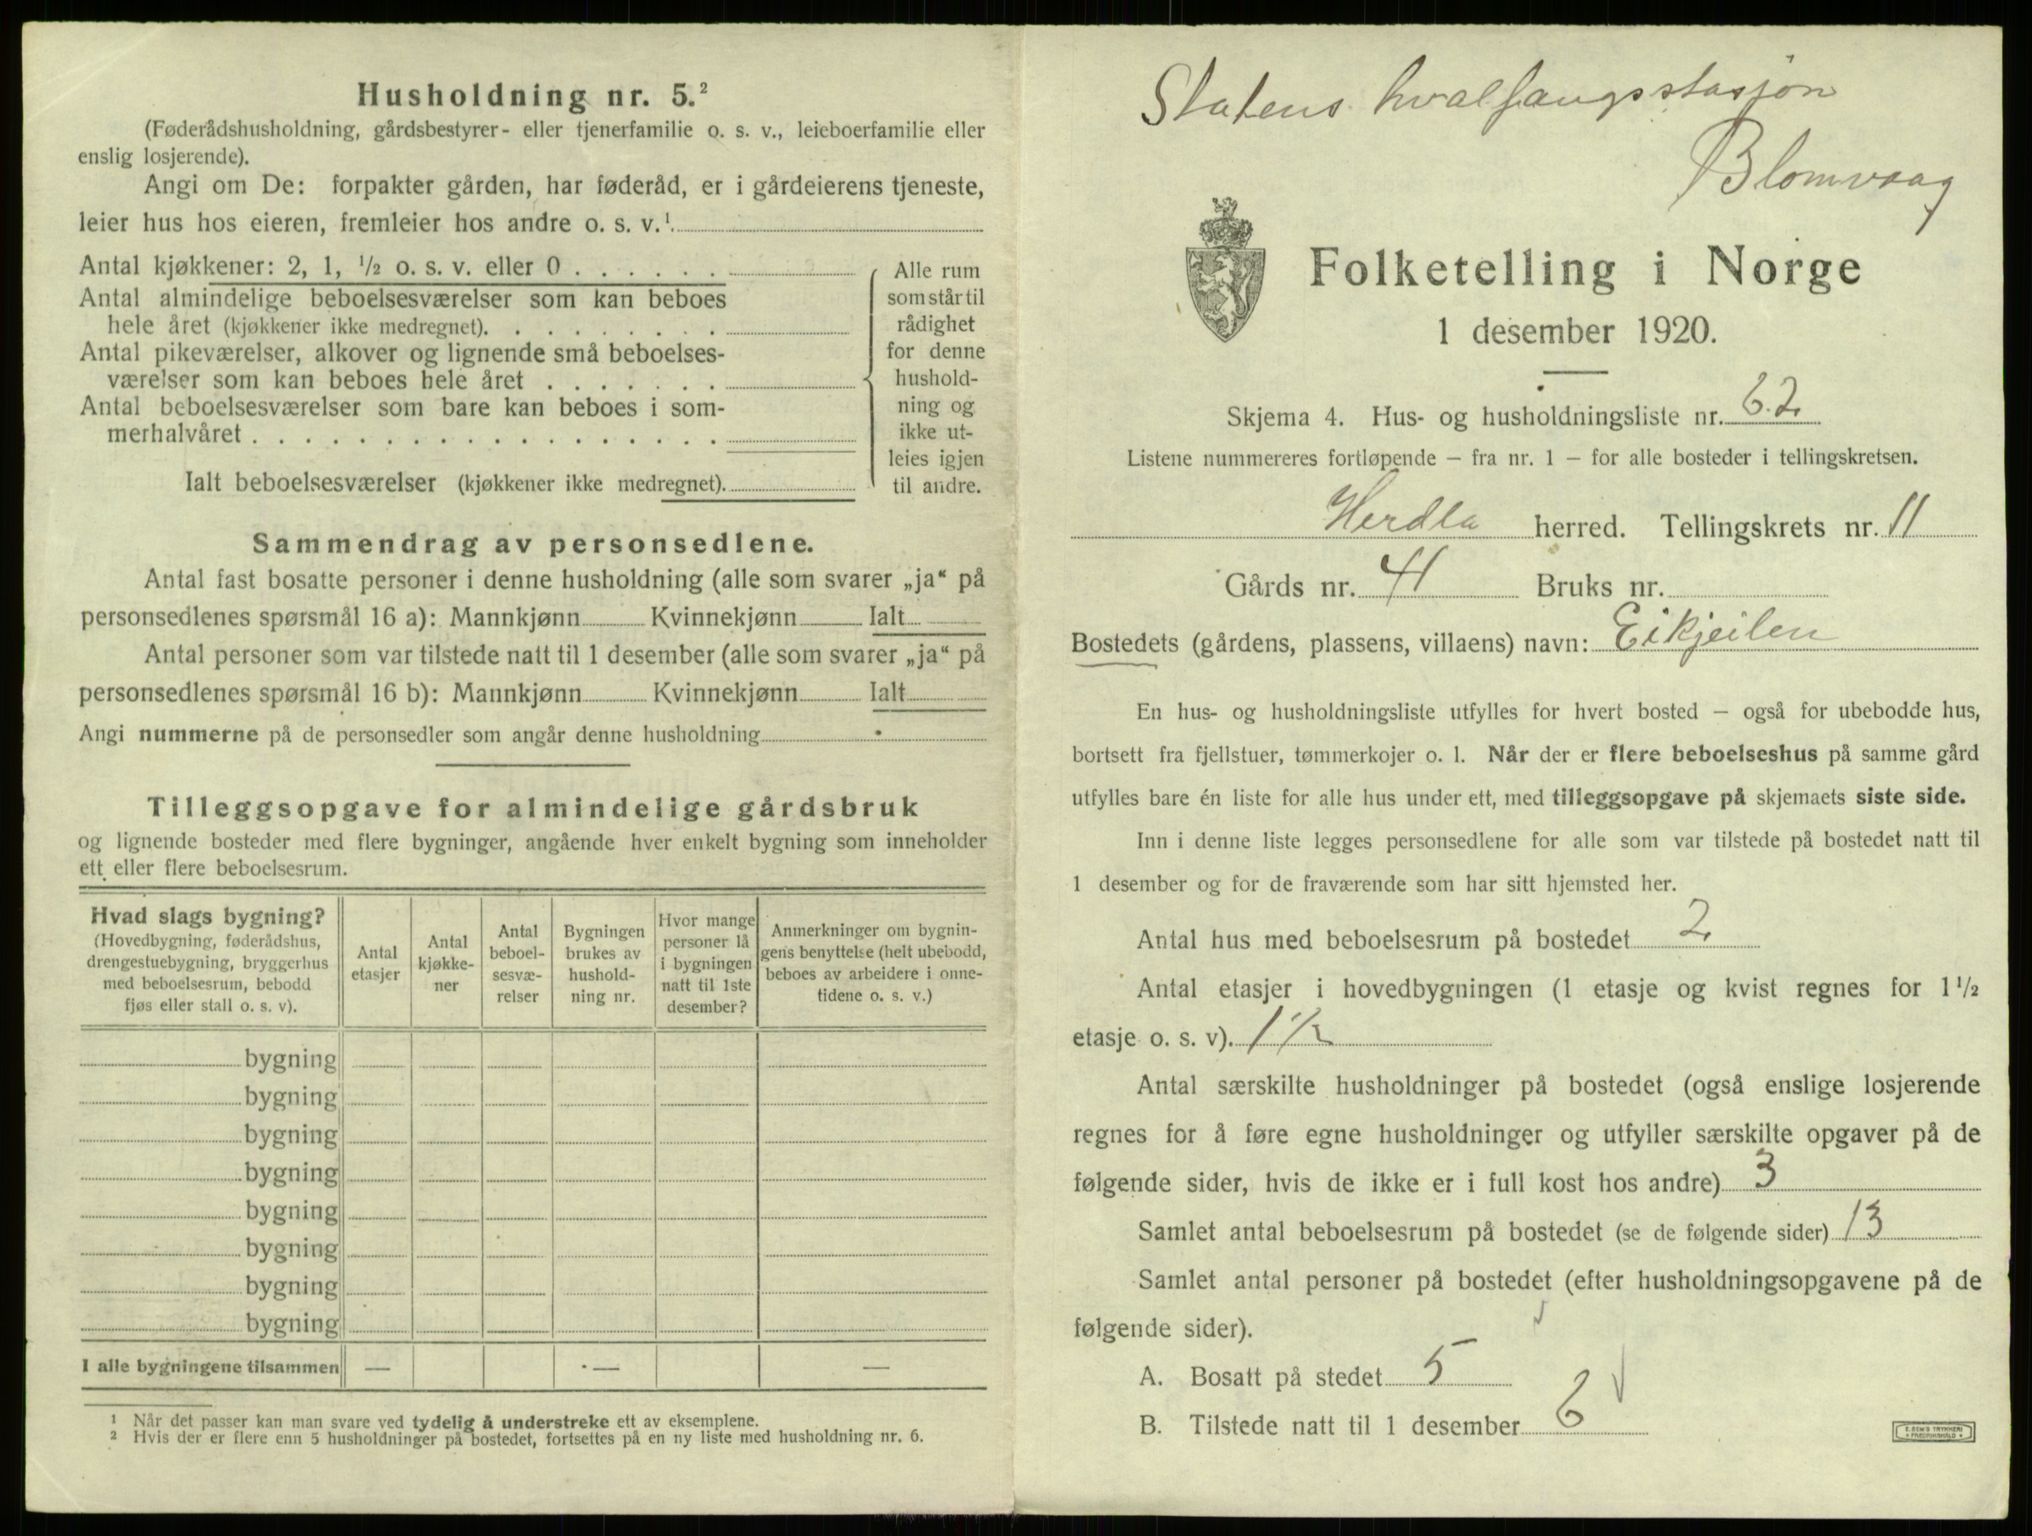 Husholdning nr. 5.²
(Føderådshusholdning, gårdsbestyrer- eller tjenerfamilie o. s. v., leieboerfamilie eller
enslig losjerende).
Angi om De: forpakter gården, har føderåd, er i gårdeierens tjeneste,
leier hus hos eieren, fremleier hos andre o. s. v.¹
Antal kjøkkener: 2, 1, ½ o. s. v. eller 0
Antal almindelige beboelsesværelser som kan beboes
hele året (kjøkkener ikke medregnet)
Antal pikeværelser, alkover og lignende små beboelses-
værelser som kan beboes hele året
Antal beboelsesværelser som bare kan beboes i som-
merhalvåret
Ialt beboelsesværelser (kjøkkener ikke medregnet)
Alle rum
som står til
rådighet
for denne
hushold-
ning og
ikke ut-
leies igjen
til andre.
Sammendrag av personsedlene.
Antal fast bosatte personer i denne husholdning (alle som svarer „ja“ på
personsedlenes spørsmål 16 a): Mannkjønn Kvinnekjønn Ialt
Antal personer som var tilstede natt til 1 desember (alle som svarer „ja“ på
personsedlenes spørsmål 16 b): Mannkjønn Kvinnekjønn Ialt
Angi nummerne på de personsedler som angår denne husholdning
Tilleggsopgave for almindelige gårdsbruk
og lignende bosteder med flere bygninger, angående hver enkelt bygning som inneholder
ett eller flere beboelsesrum.
Hvad slags bygning?
(Hovedbygning, føderådshus,
drengestuebygning, bryggerhus
med beboelsesrum, bebodd
fjøs eller stall o. s. v).
Antal
etasjer
Antal
kjøkke-
ner
Antal
beboel-
sesvæ-
relser
Bygningen
brukes av
hushold-
ning nr.
Hvor mange
personer lå
i bygningen
natt til 1ste
desember?
Anmerkninger om bygnin-
gens benyttelse (helt ubebodd,
beboes av arbeidere i onne-
tidene o. s. v.)
bygning
bygning
bygning
bygning
bygning
bygning
bygning
bygning
I alle bygningene tilsammen — — —
¹ Når det passer kan man svare ved tydelig å understreke ett av eksemplene.
² Hvis der er flere enn 5 husholdninger på bostedet, fortsettes på en ny liste med husholdning nr. 6.
Statens hvalfangsstasjon
Blomvaag
Folketelling i Norge
1 desember 1920.
Skjema 4. Hus- og husholdningsliste nr. 62
Listene nummereres fortløpende – fra nr. 1 – for alle bosteder i tellingskretsen.
Herdla herred. Tellingskrets nr. 11
Gårds nr. 41 Bruks nr.
Bostedets (gårdens, plassens, villaens) navn: Eikjeilen
En hus- og husholdningsliste utfylles for hvert bosted – også for ubebodde hus,
bortsett fra fjellstuer, tømmerkojer o. l. Når der er flere beboelseshus på samme gård
utfylles bare én liste for alle hus under ett, med tilleggsopgave på skjemaets siste side.
Inn i denne liste legges personsedlene for alle som var tilstede på bostedet natt til
1 desember og for de fraværende som har sitt hjemsted her.
Antal hus med beboelsesrum på bostedet 2
Antal etasjer i hovedbygningen (1 etasje og kvist regnes for 1½
etasje o. s. v). 1½
Antal særskilte husholdninger på bostedet (også enslige losjerende
regnes for å føre egne husholdninger og utfyller særskilte opgaver på de
følgende sider, hvis de ikke er i full kost hos andre) 3
Samlet antal beboelsesrum på bostedet (se de følgende sider) 13
Samlet antal personer på bostedet (efter husholdningsopgavene på de
følgende sider).
A. Bosatt på stedet 5
B. Tilstede natt til 1 desember 6